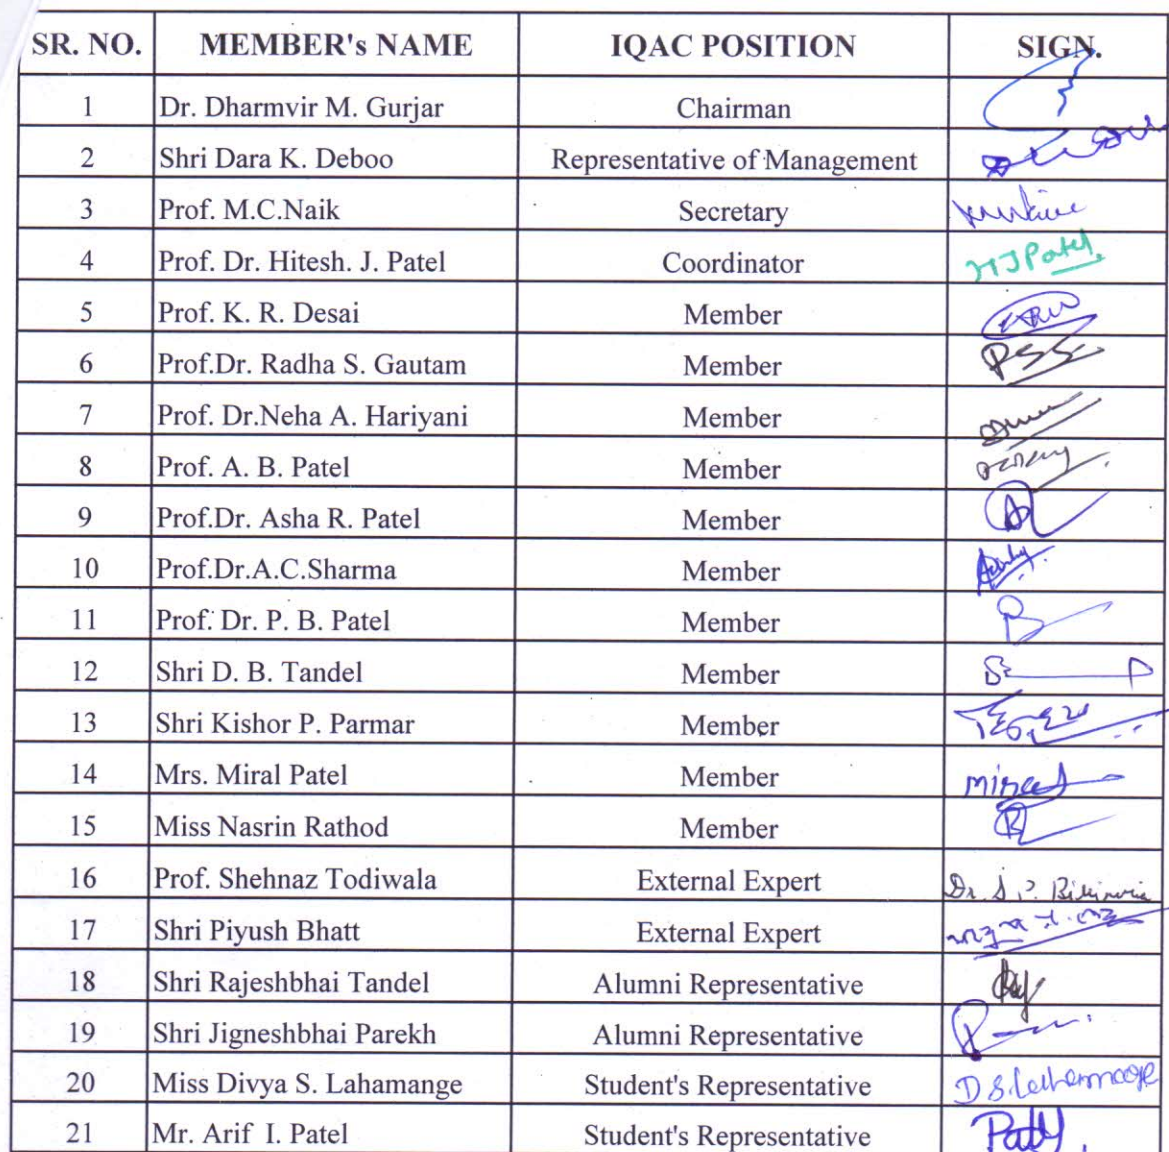 SR. NO. MEMBER's NAME IQAC POSITION SIGN.
1 Dr. Dharmvir M. Gurjar Chairman
2 Shri Dara K. Deboo Representative of Management
3 Prof. M.C.Naik Secretary
4 Prof. Dr. Hitesh. J. Patel Coordinator HJPatel
5 Prof. K. R. Desai Member
6 Prof.Dr. Radha S. Gautam Member
7 Prof. Dr.Neha A. Hariyani Member
8 Prof. A. B. Patel Member
9 Prof.Dr. Asha R. Patel Member
10 Prof.Dr.A.C.Sharma Member
11 Prof. Dr. P. B. Patel Member
12 Shri D. B. Tandel Member
13 Shri Kishor P. Parmar Member
14 Mrs. Miral Patel Member
15 Miss Nasrin Rathod Member
16 Prof. Shehnaz Todiwala External Expert Dr. S. P.
17 Shri Piyush Bhatt External Expert
18 Shri Rajeshbhai Tandel Alumni Representative
19 Shri Jigneshbhai Parekh Alumni Representative
20 Miss Divya S. Lahamange Student's Representative
21 Mr. Arif I. Patel Student's Representative